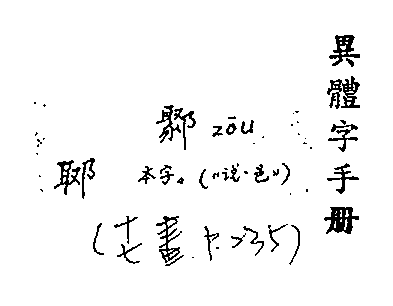 異體字手册
鄹 zōu
郰 本字。(《说·邑》)
(十七畫